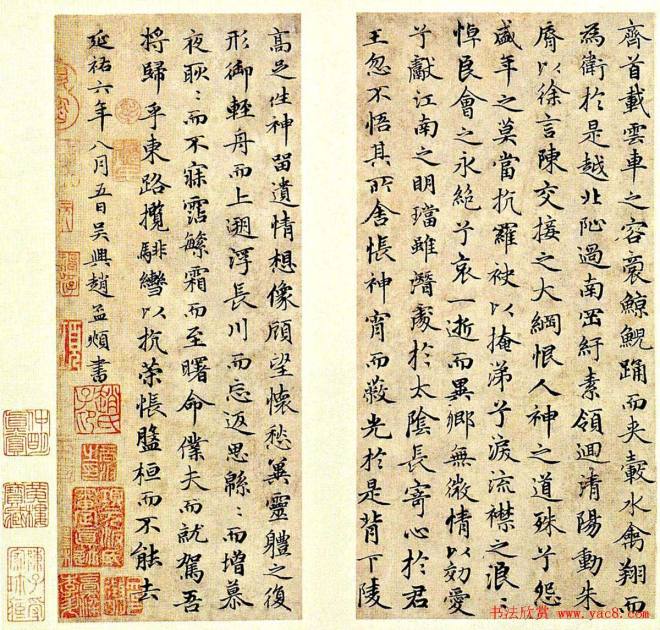 齊首載雲車之容裔鯨鯢踊而夾轂水禽翔而
為衛於是越北沚過南岡紆素領迴清陽動朱
脣以徐言陳交接之大綱恨人神之道殊兮怨
盛年之莫當抗羅袂以掩涕兮淚流襟之浪〻
悼良會之永絕兮哀一逝而異鄉無微情以効愛
兮獻江南之明璫雖潛處於太陰長寄心於君
王忽不悟其所舍悵神宵而蔽光於是背下陵
高足往神留遺情想像顧望懷愁冀靈體之復
形御輕舟而上遡浮長川而忘返思緜〻而增慕
夜耿〻而不寐霑繁霜而至曙命僕夫而就駕吾
將歸乎東路攬騑轡以抗策悵盤桓而不能去
延祐六年八月五日吳興趙孟頫書
趙氏子昂
书法欣赏 www.yac8.com